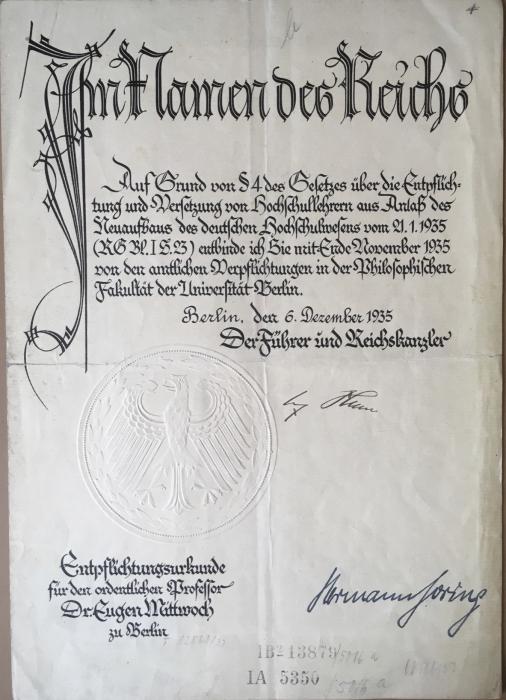 Im Namen des Reichs
Auf Grund von § 4 des Gesetzes über die Entpflich-
tung und Versetzung von Hochschullehrern aus Anlaß des
Neuaufbaus des deutschen Hochschulwesens vom 21.1.1935
(RG Bl. I S. 23) entbinde ich Sie mit Ende November 1935
von den amtlichen Verpflichtungen in der Philosophischen
Fakultät der Universität Berlin.
Berlin, den 6. Dezember 1935
Der Führer und Reichskanzler
Hermann Göring
Entpflichtungsurkunde
für den ordentlichen Professor
Dr. Eugen Mittwoch
zu Berlin
IA 5350